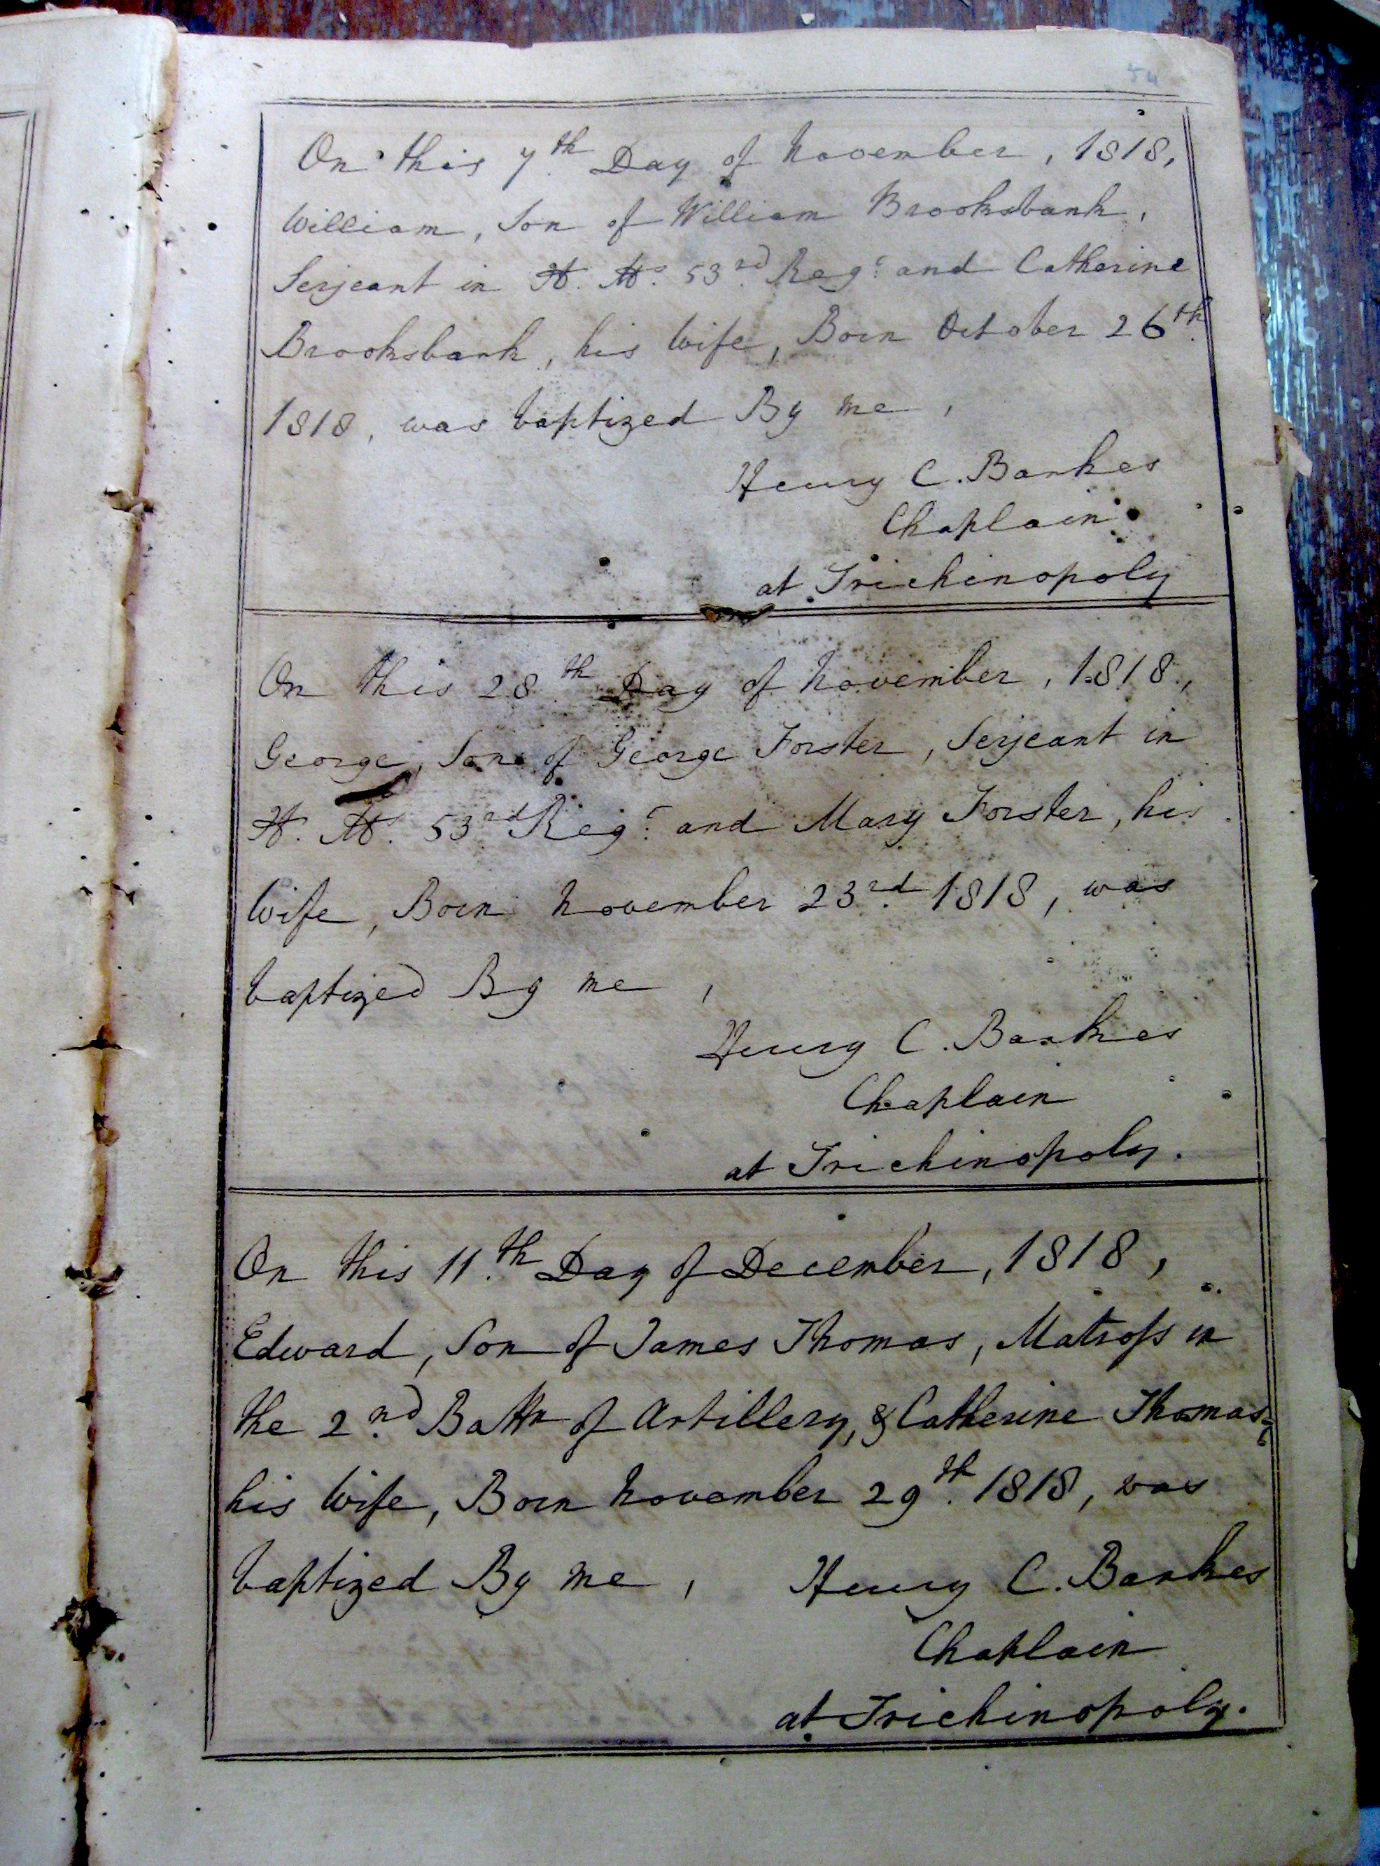 54
On this 7th Day of November, 1818,
William, Son of William Brooksbank,
Serjeant in H. M's. 53rd Regt. and Catherine
Brooksbank, his Wife, Born October 26th.
1818, was baptized By me,
Henry C. Bankes
Chaplain
at Trichinopoly
On this 28th Day of November, 1818,
George, Son of George Forster, Serjeant in
H. M's. 53rd Regt. and Mary Forster, his
Wife, Born November 23rd. 1818, was
baptized By me,
Henry C. Bankes
Chaplain
at Trichinopoly.
On this 11.th Day of December, 1818,
Edward, Son of James Thomas, Matross in
the 2.nd Battn of Artillery, & Catherine Thomas,
his Wife, Born November 29th. 1818, was
baptized By me, Henry C. Bankes
Chaplain
at Trichinopoly.